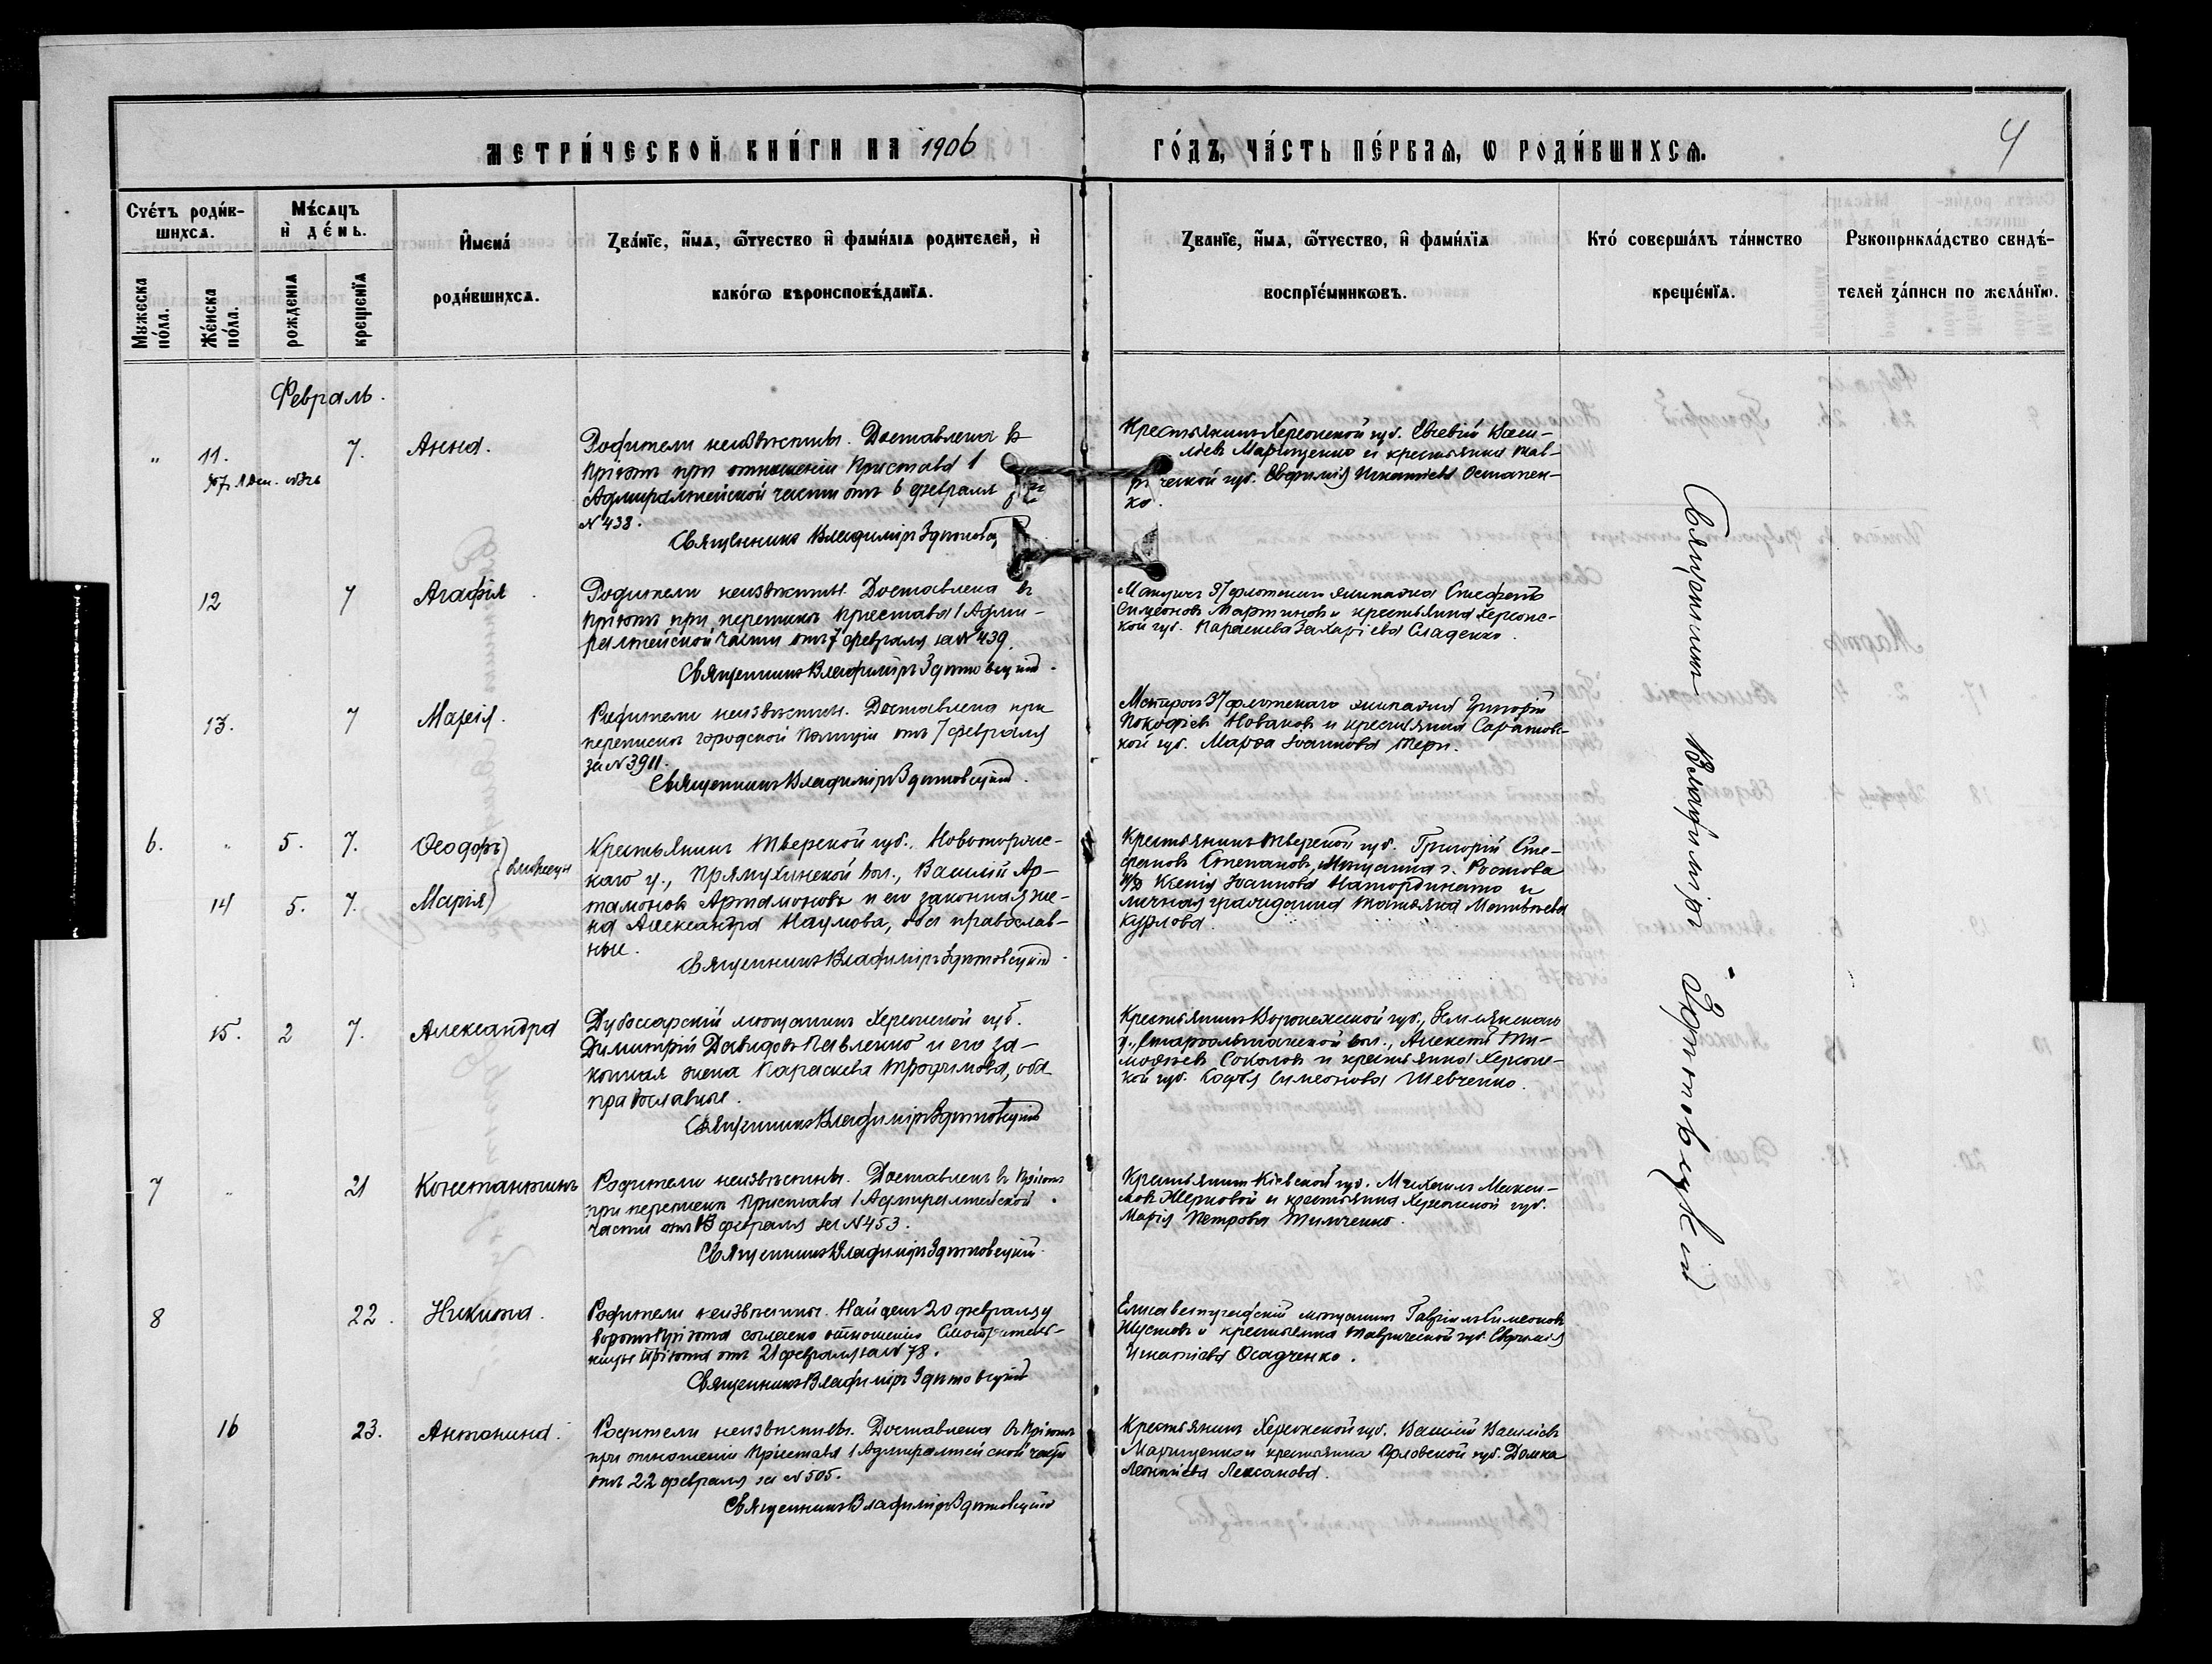 МЕТРИ́ЧЕСКОЙ КНИ́ГИ НА 1906 ГО́ДЪ, ЧА́СТЬ ПЕ́РВАѦ, Ѡ РОДИ́ВШИХСѦ.
4
Сче́тъ роди́в-
шихсѧ.
Мѣ́сѧцъ
и де́нь.
Имена́
роди́вшихсѧ.
Зва́нїе, и́мѧ, ѻ҆́тчество и҆ фами́лїѧ родителей, и҆
како́гѡ вѣроисповѣ́данїѧ.
Зва́нїе, и́мѧ, ѻ҆́тчество, и҆ фами́лїѧ
воспрїе́мниковъ.
Кто́ соверша́лъ та́инство
креще́нїѧ.
Рꙋкоприкла́дство свидѣ́-
телей за́писи по жела́нїю.
Мужеска
по́ла.
Же́нска
по́ла.
рожденїѧ
крещенїѧ
Февраль.
" 11. 7. Анна.
Родители неизвѣстны. Доставлена въ
Пріютъ при отношеніи Пристава 1
Адмиралтейской части отъ 6 февраля за
N 438.
Священникъ Владиміръ
Крестьянинъ Херсонской губ. Евсевій Васи-
льевъ Марищенко и крестьянка Тав-
рической губ. Евфимія Игнатіева Остапен-
ко.
12 7 Агафія.
Родители неизвѣстны. Доставлена въ
Пріютъ при перепискѣ Пристава 1 Адми-
ралтейской части отъ 7 февраля за N 439.
Священникъ Владиміръ Здитовецкій.
Матросъ 37 флотскаго экипажа Стефанъ
Симеоновъ Мартиновъ и крестьянка Херсонс-
кой губ. Параскева Захаріева Сладенко.
13. 7 Марія.
Родители неизвѣстны. Доставлена при
перепискѣ городской полиціи отъ 7 февраля
за N 3911.
Священникъ Владиміръ Здитовецкій.
Матросъ 37 флотскаго экипажа Григорій
Новаковъ и крестьянка Саратовс-
кой губ. Марѳа Іоаннова
6. " 5. 7. Ѳеодоръ
14 5. 7. Марія
близнецы
Крестьянинъ Тверской губ., Новоторжс-
каго у., Прямухинской вол., Василій Ар-
тамоновъ Артамоновъ и его законная же-
на Александра Наумова, оба православ-
ные.
Священникъ Владиміръ Здитовецкій.
Крестьянинъ Тверской губ. Григорій Сте-
фановъ Степановъ, мѣщанка г. Ростова
н/Д Ксенія Іоаннова и
личная гражданка Татьяна Матвѣева
Курлова.
15. 2 7. Александра
Дубоссарскій мѣщанинъ Херсонской губ.
Димитрій Давидовъ Павленко и его за-
конная жена Параскева Трофимова, оба
православные.
Священникъ Владиміръ Здитовецкій
Крестьянинъ Воронежской губ., Землянскаго
у., Старо вол., Алексѣй Ти-
моѳеевъ Соколовъ и крестьянка Херсонс-
кой губ. Софія Симеонова Шевченко.
7 " 21 Константинъ
Родители неизвѣстны. Доставленъ въ Пріютъ
при перепискѣ Пристава 1 Адмиралтейской
части отъ февраля за N 453.
Священникъ Владиміръ Здитовецкій.
Крестьянинъ Кіевской губ. Михаилъ Макси-
мовъ и крестьянка Херсонской губ.
Марія Петрова Тимченко.
8 22. Никита.
Родители неизвѣстны. Найденъ 20 февраля у
воротъ Пріюта согласно отношенію Смотритель-
ницы Пріюта отъ 21 февраля за N 78.
Священникъ Владиміръ Здитовецкій
Елисаветградскій мѣщанинъ Гавріилъ Симеоновъ
Шустовъ и крестьянка Таврической губ. Евфимія
Игнатіева Осадченко.
16 23. Антонина.
Родители неизвѣстны. Доставлена въ Пріютъ
при отношеніи Пристава 1 Адмиралтейской части
отъ 22 февраля за N 505.
Священникъ Владиміръ Здитовецкій
Крестьянинъ Херсонской губ. Василій Васильевъ
Марищенко и крестьянка Орловской губ. Домка
Леонтіева Лексакова.
Священникъ Владиміръ Здитовецкій